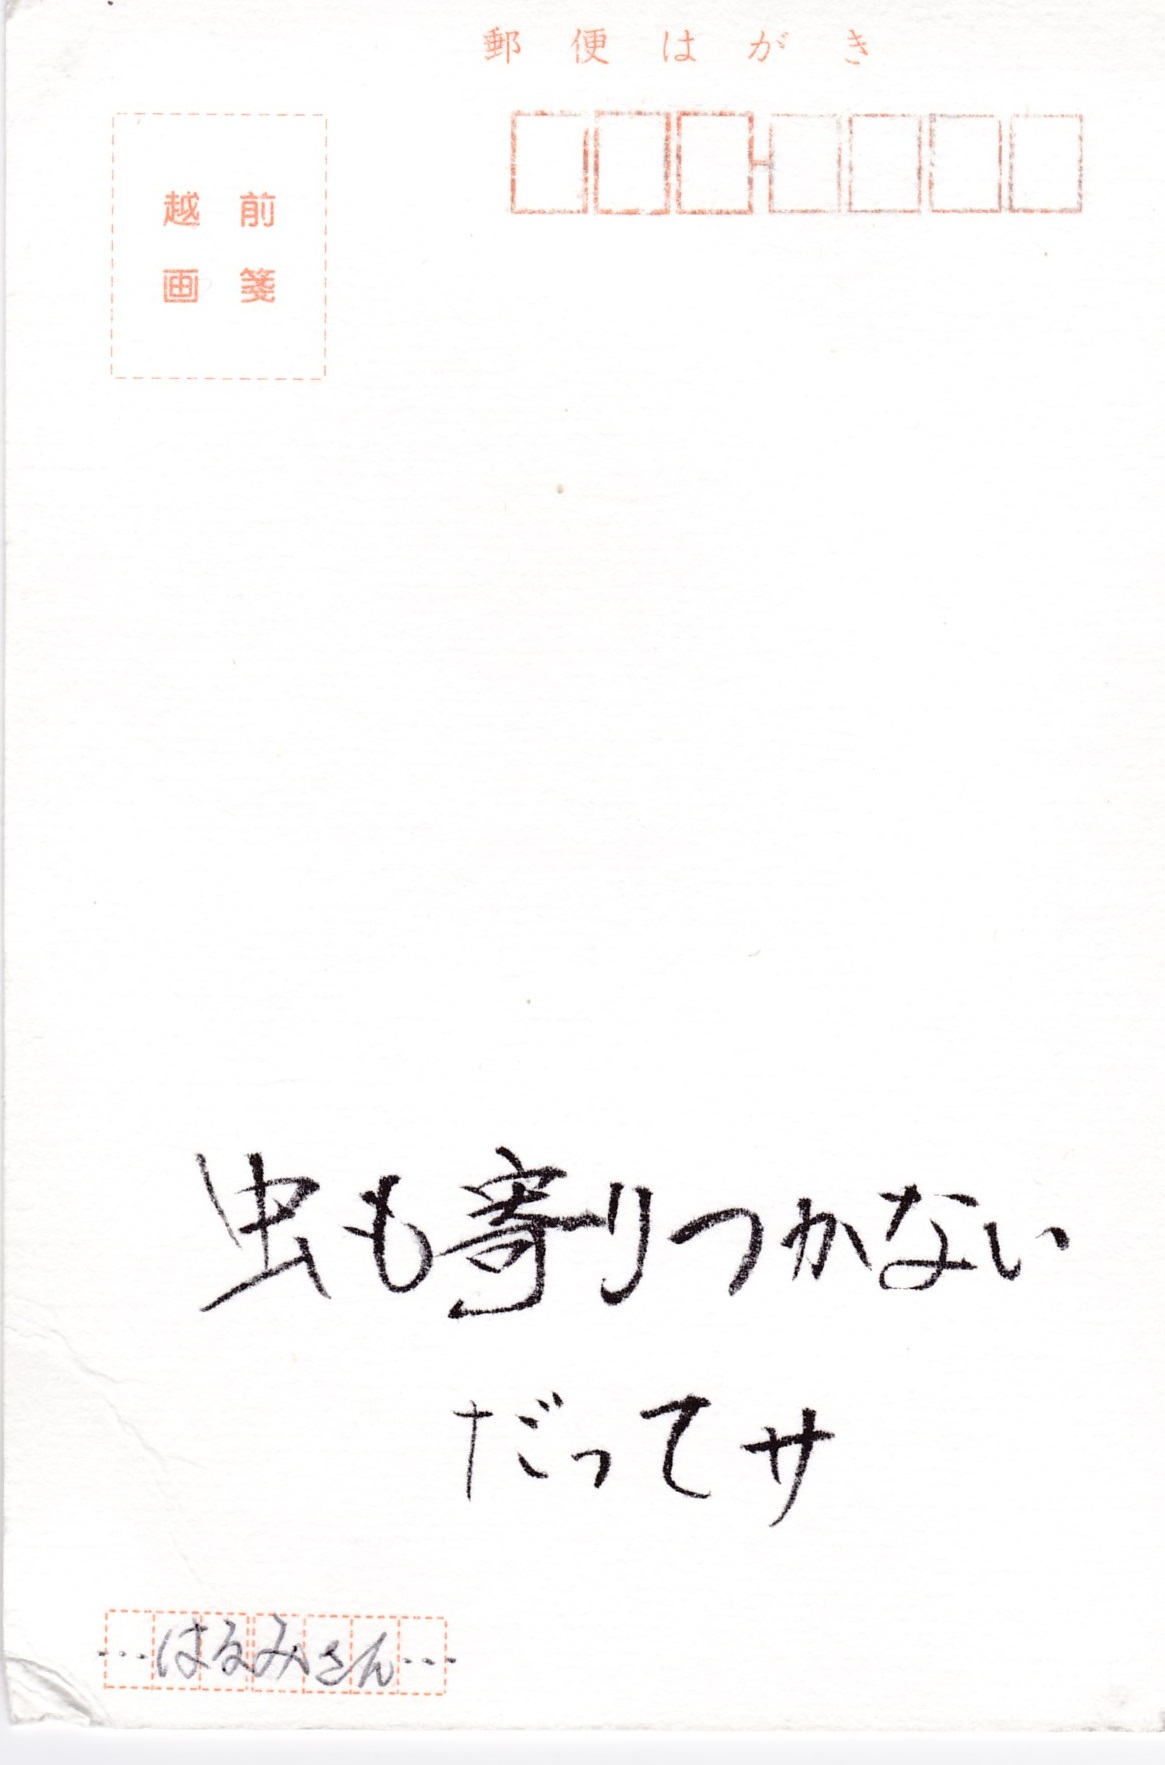 郵便はがき
越前
画箋
虫も寄りつかない
だってサ
…はるみさん…